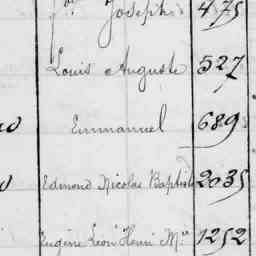 Joseph 475
Louis Auguste 527
Emmanuel 689
Edmond Nicolas Baptiste 2035
Eugène Léon Henri M.ie 1252